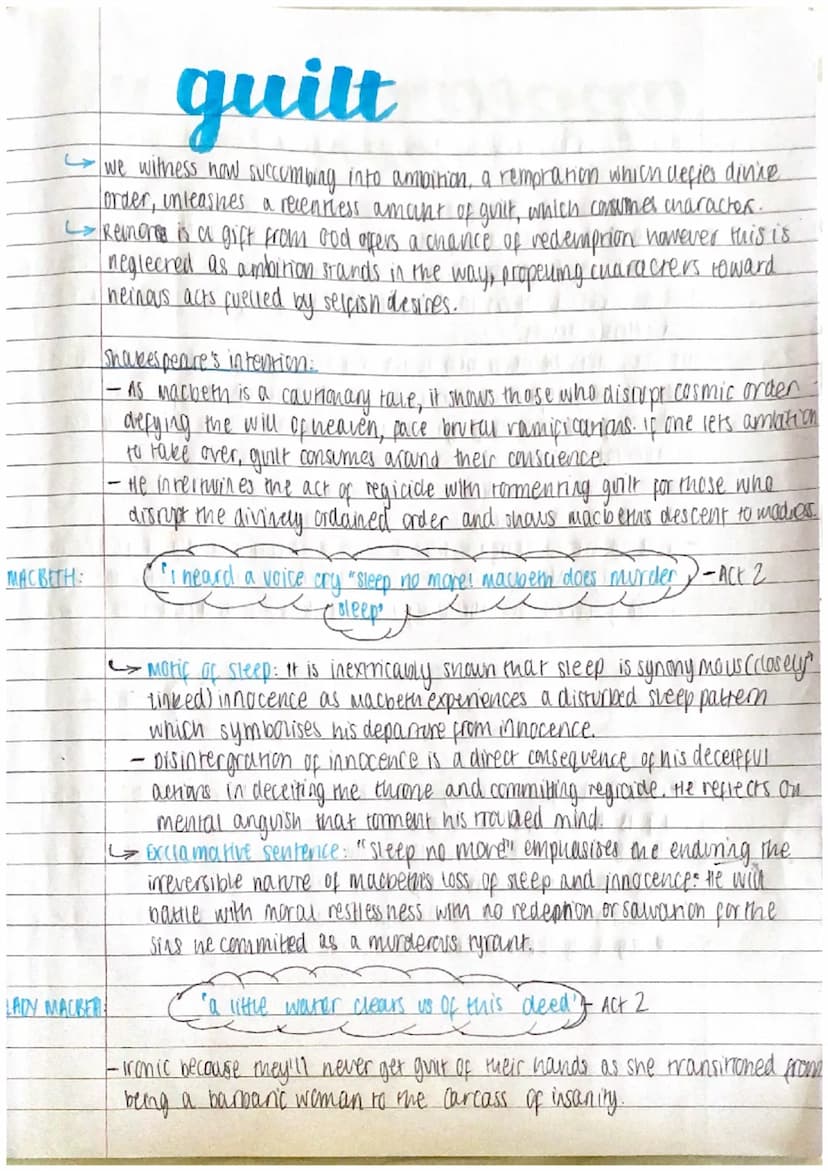 guilt
↳ we witness how succumbing into ambition, a temptation which defies divine
order, unleashes a relentless amount of guilt, which consumes character.
↳ Remorse is a gift from God offers a chance of redemption however this is
neglected as ambition stands in the way, propelling characters toward
heinous acts fuelled by selfish desires.
Shakespeare's intention:
- As macbeth is a cautionary tale, it shows those who disrupt cosmic order
defying the will of heaven, face brutal ramifications. if one lets ambition
to take over, guilt consumes around their conscience.
- He intertwines the act of regicide with tormenting guilt for those who
disrupt the divinely ordained order and shows macbeth's descent to madness.
MACBETH: "I heard a voice cry "sleep no more! macbeth does murder - ACT 2
sleep"
↳ Motif of sleep: It is inextricably shown that sleep is synonymous (closely
linked) innocence as macbeth experiences a disturbed sleep pattern
which symbolises his departure from innocence.
- Disintergration of innocence is a direct consequence of his deceitful
actions in deceiting the throne and committing regicide. He reflects on
mental anguish that torment his troubled mind.
↳ Exclamative sentence: "sleep no more" emphasises the enduring the
irreversible nature of macbeth's loss of sleep and innocence. He will
battle with moral restlessness with no redeption or salvation for the
sins he commited as a murderous tyrant.
LADY MACBETH: 'a little water clears us of this deed' - Act 2
- ironic because they'll never get guilt of their hands as she transitioned from
being a barbaric woman to the carcass of insanity.